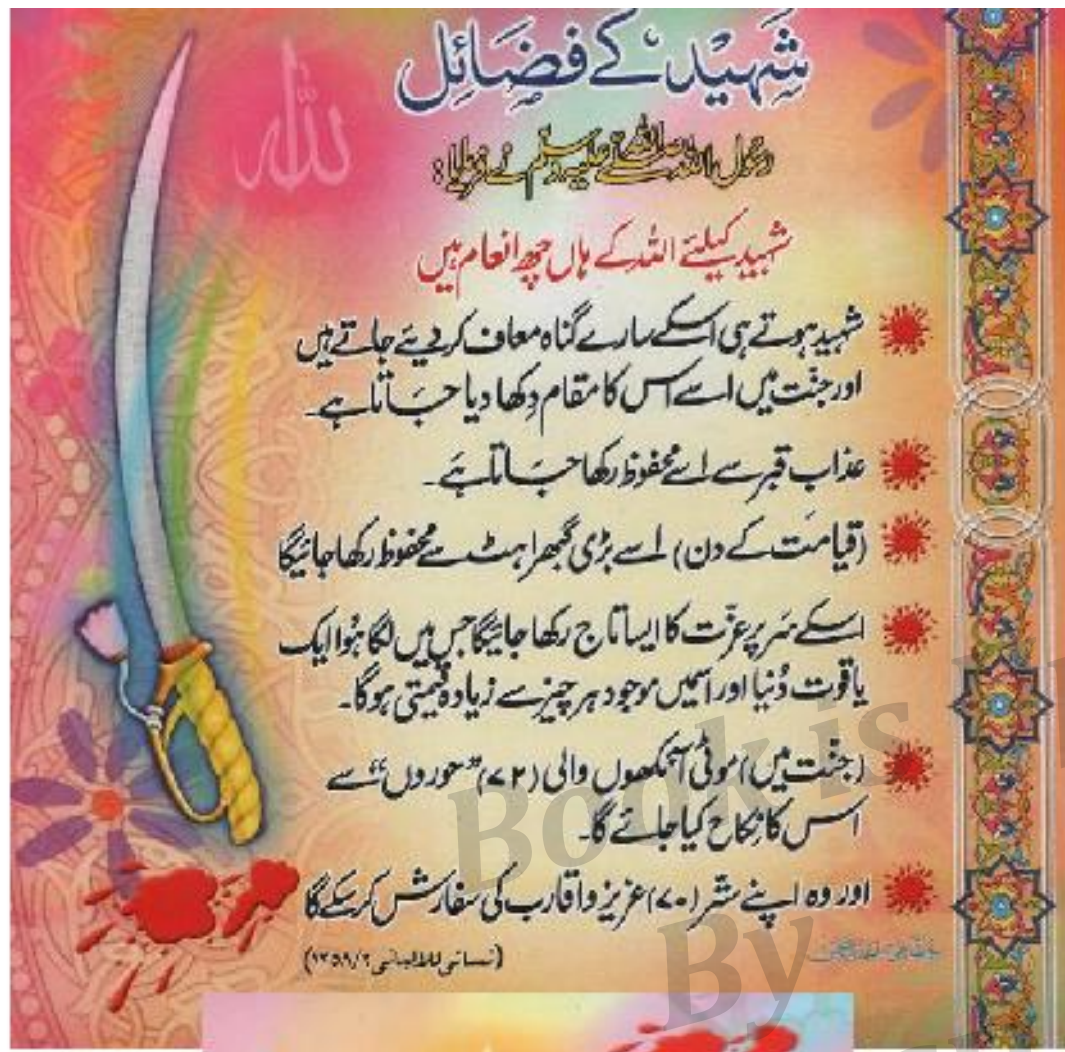 شہید کے فضائل
رسول اللہ صلی اللہ علیہ وسلم نے فرمایا:
شہید کیلئے اللہ کے ہاں چھ انعام ہیں
شہید ہوتے ہی اسکے سارے گناہ معاف کردیئے جاتے ہیں
اور جنّت میں اسے اس کا مقام دِکھا دیا جَاتا ہے۔
عذاب قبر سے اسے محفوظ رکھا جَاتا ہَے۔
(قیامَت کے دن) اسے بڑی گھبراہٹ سے محفوظ رکھا جائیگا
اسکے سَر پر عزّت کا ایسا تاج رکھا جائیگا جس میں لگا ہُوا ایک
یاقوت دُنیا اور اسمیں موجود ہر چیز سے زیادہ قیمتی ہوگا۔
(جنّت میں) موٹی آنکھوں والی (۷۲) "حوروں" سے
اس کا نِکاح کیا جائے گا۔
اور وہ اپنے ستّر (۷۰) عزیز و اقارب کی سفارش کرسکے گا
(نسائی للالبانی ۱۳۵۸/۲)
اللہ
Book is
By